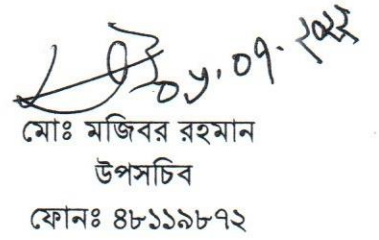 ০৮.০৭.২০২২
মোঃ মজিবর রহমান
উপসচিব
ফোনঃ ৪৮১১৯৮৭২